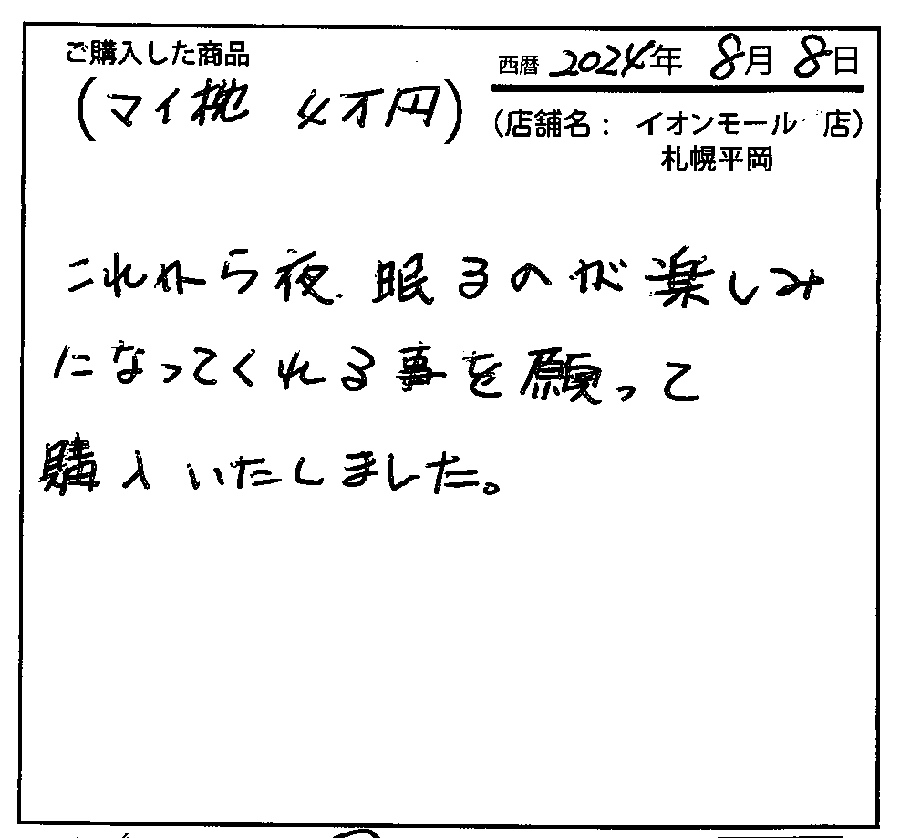 ご購入した商品
西暦 2024年 8月 8日
(マイ枕 4万円)
(店舗名： イオンモール 店)
札幌平岡
これから夜眠るのが楽しみ
になってくれる事を願って
購入いたしました。